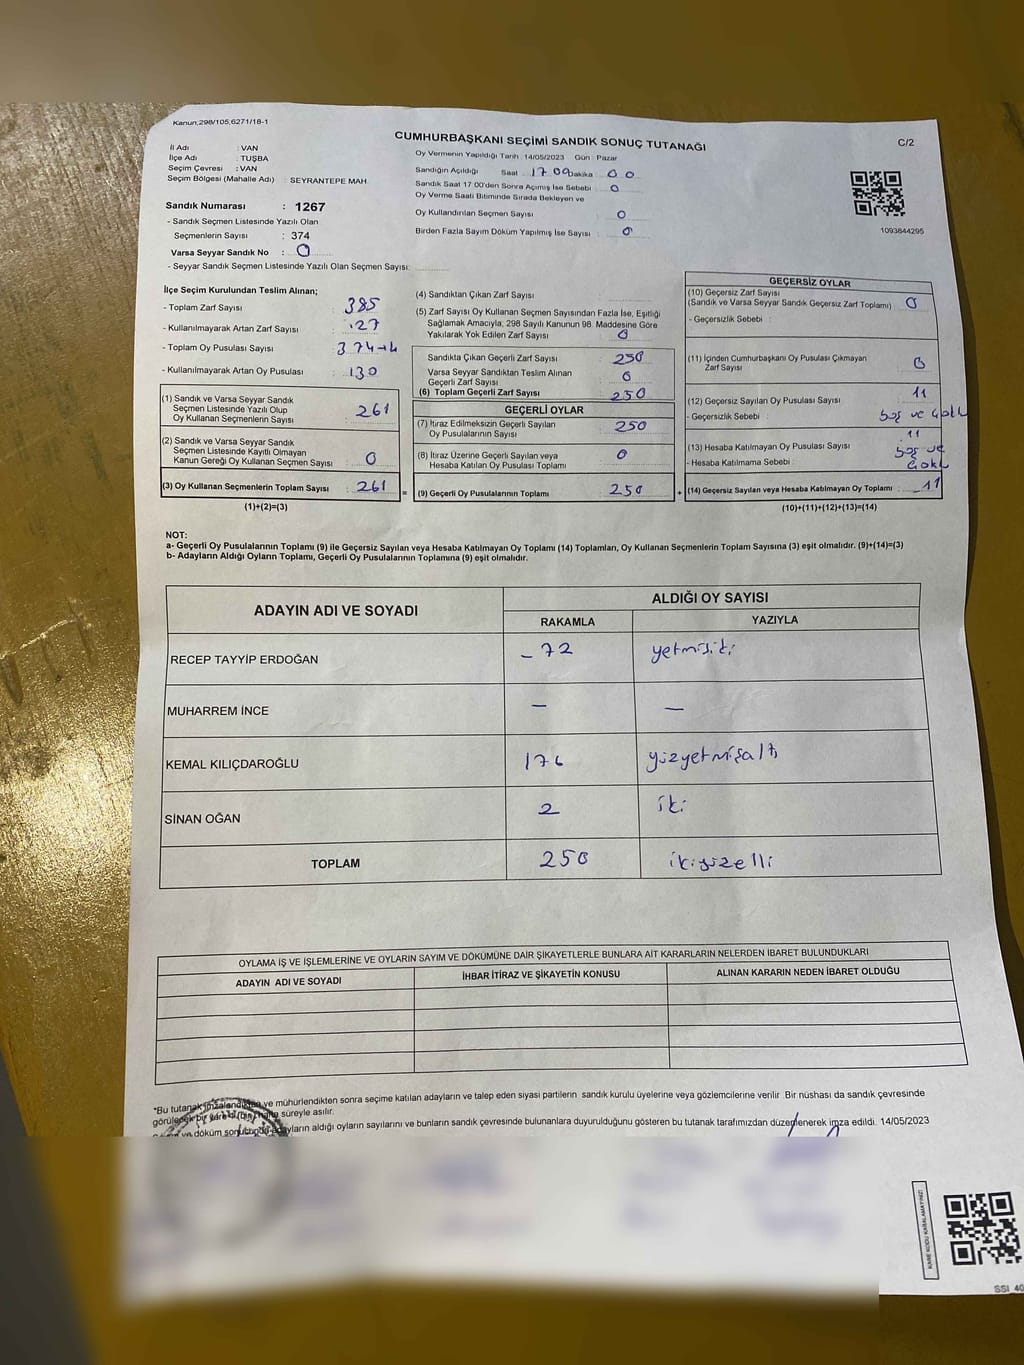 Kanun:298/105,6271/18-1
CUMHURBAŞKANI SEÇİMİ SANDIK SONUÇ TUTANAĞI
C/2
İl Adı : VAN
İlçe Adı : TUŞBA
Seçim Çevresi : VAN
Seçim Bölgesi (Mahalle Adı) : SEYRANTEPE MAH.
Sandık Numarası : 1267
- Sandık Seçmen Listesinde Yazılı Olan
Seçmenlerin Sayısı : 374
Varsa Seyyar Sandık No : 0
- Seyyar Sandık Seçmen Listesinde Yazılı Olan Seçmen Sayısı:
Oy Vermenin Yapıldığı Tarih 14/05/2023 Gün : Pazar
Sandığın Açıldığı Saat 17 00 Dakika 00
Sandık Saat 17:00'den Sonra Açımış İse Sebebi : 0
Oy Verme Saati Bitiminde Sırada Bekleyen ve
Oy Kullandırılan Seçmen Sayısı : 0
Birden Fazla Sayım Döküm Yapılmış İse Sayısı : 0
1093844295
İlçe Seçim Kurulundan Teslim Alınan;
- Toplam Zarf Sayısı : 385
- Kullanılmayarak Artan Zarf Sayısı : 127
- Toplam Oy Pusulası Sayısı : 374+
- Kullanılmayarak Artan Oy Pusulası : 130
(1) Sandık ve Varsa Seyyar Sandık
Seçmen Listesinde Yazılı Olup
Oy Kullanan Seçmenlerin Sayısı : 261
(2) Sandık ve Varsa Seyyar Sandık
Seçmen Listesinde Kayıtlı Olmayan
Kanun Gereği Oy Kullanan Seçmen Sayısı : 0
(3) Oy Kullanan Seçmenlerin Toplam Sayısı : 261
(1)+(2)=(3)
(4) Sandıktan Çıkan Zarf Sayısı :
(5) Zarf Sayısı Oy Kullanan Seçmen Sayısından Fazla İse, Eşitliği
Sağlamak Amacıyla; 298 Sayılı Kanunun 98. Maddesine Göre
Yakılarak Yok Edilen Zarf Sayısı : 0
Sandıkta Çıkan Geçerli Zarf Sayısı : 250
Varsa Seyyar Sandıktan Teslim Alınan
Geçerli Zarf Sayısı : 0
(6) Toplam Geçerli Zarf Sayısı : 250
GEÇERLİ OYLAR
(7) İtiraz Edilmeksizin Geçerli Sayılan
Oy Pusulalarının Sayısı : 250
(8) İtiraz Üzerine Geçerli Sayılan veya
Hesaba Katılan Oy Pusulası Toplamı : 0
= (9) Geçerli Oy Pusulalarının Toplamı : 250
GEÇERSİZ OYLAR
(10) Geçersiz Zarf Sayısı
(Sandık ve Varsa Seyyar Sandık Geçersiz Zarf Toplamı) : 0
- Geçersizlik Sebebi :
(11) İçinden Cumhurbaşkanı Oy Pusulası Çıkmayan
Zarf Sayısı : 0
(12) Geçersiz Sayılan Oy Pusulası Sayısı : 11
- Geçersizlik Sebebi : boş ve çoklu
(13) Hesaba Katılmayan Oy Pusulası Sayısı : 11
- Hesaba Katılmama Sebebi : boş ve
çoklu
+ (14) Geçersiz Sayılan veya Hesaba Katılmayan Oy Toplamı : 11
(10)+(11)+(12)+(13)=(14)
NOT:
a- Geçerli Oy Pusulalarının Toplamı (9) ile Geçersiz Sayılan veya Hesaba Katılmayan Oy Toplamı (14) Toplamları, Oy Kullanan Seçmenlerin Toplam Sayısına (3) eşit olmalıdır. (9)+(14)=(3)
b- Adayların Aldığı Oyların Toplamı, Geçerli Oy Pusulalarının Toplamına (9) eşit olmalıdır.
ADAYIN ADI VE SOYADI
ALDIĞI OY SAYISI
RAKAMLA YAZIYLA
RECEP TAYYİP ERDOĞAN – 72 yetmişiki
MUHARREM İNCE – –
KEMAL KILIÇDAROĞLU 176 yüzyetmişaltı
SİNAN OĞAN 2 iki
TOPLAM 250 ikiyüzelli
OYLAMA İŞ VE İŞLEMLERİNE VE OYLARIN SAYIM VE DÖKÜMÜNE DAİR ŞİKAYETLERLE BUNLARA AİT KARARLARIN NELERDEN İBARET BULUNDUKLARI
ADAYIN ADI VE SOYADI İHBAR İTİRAZ VE ŞİKAYETİN KONUSU ALINAN KARARIN NEDEN İBARET OLDUĞU
*Bu tutanak imzalandıktan ve mühürlendikten sonra seçime katılan adayların ve talep eden siyasi partilerin sandık kurulu üyelerine veya gözlemcilerine verilir. Bir nüshası da sandık çevresinde
görülecek bir yere (bir) hafta süreyle asılır.
ve döküm sonucunda adayların aldığı oyların sayılarını ve bunların sandık çevresinde bulunanlara duyurulduğunu gösteren bu tutanak tarafımızdan düzenlenerek imza edildi. 14/05/2023
KARE KODU KARALAMAYINIZ!
SSI 40